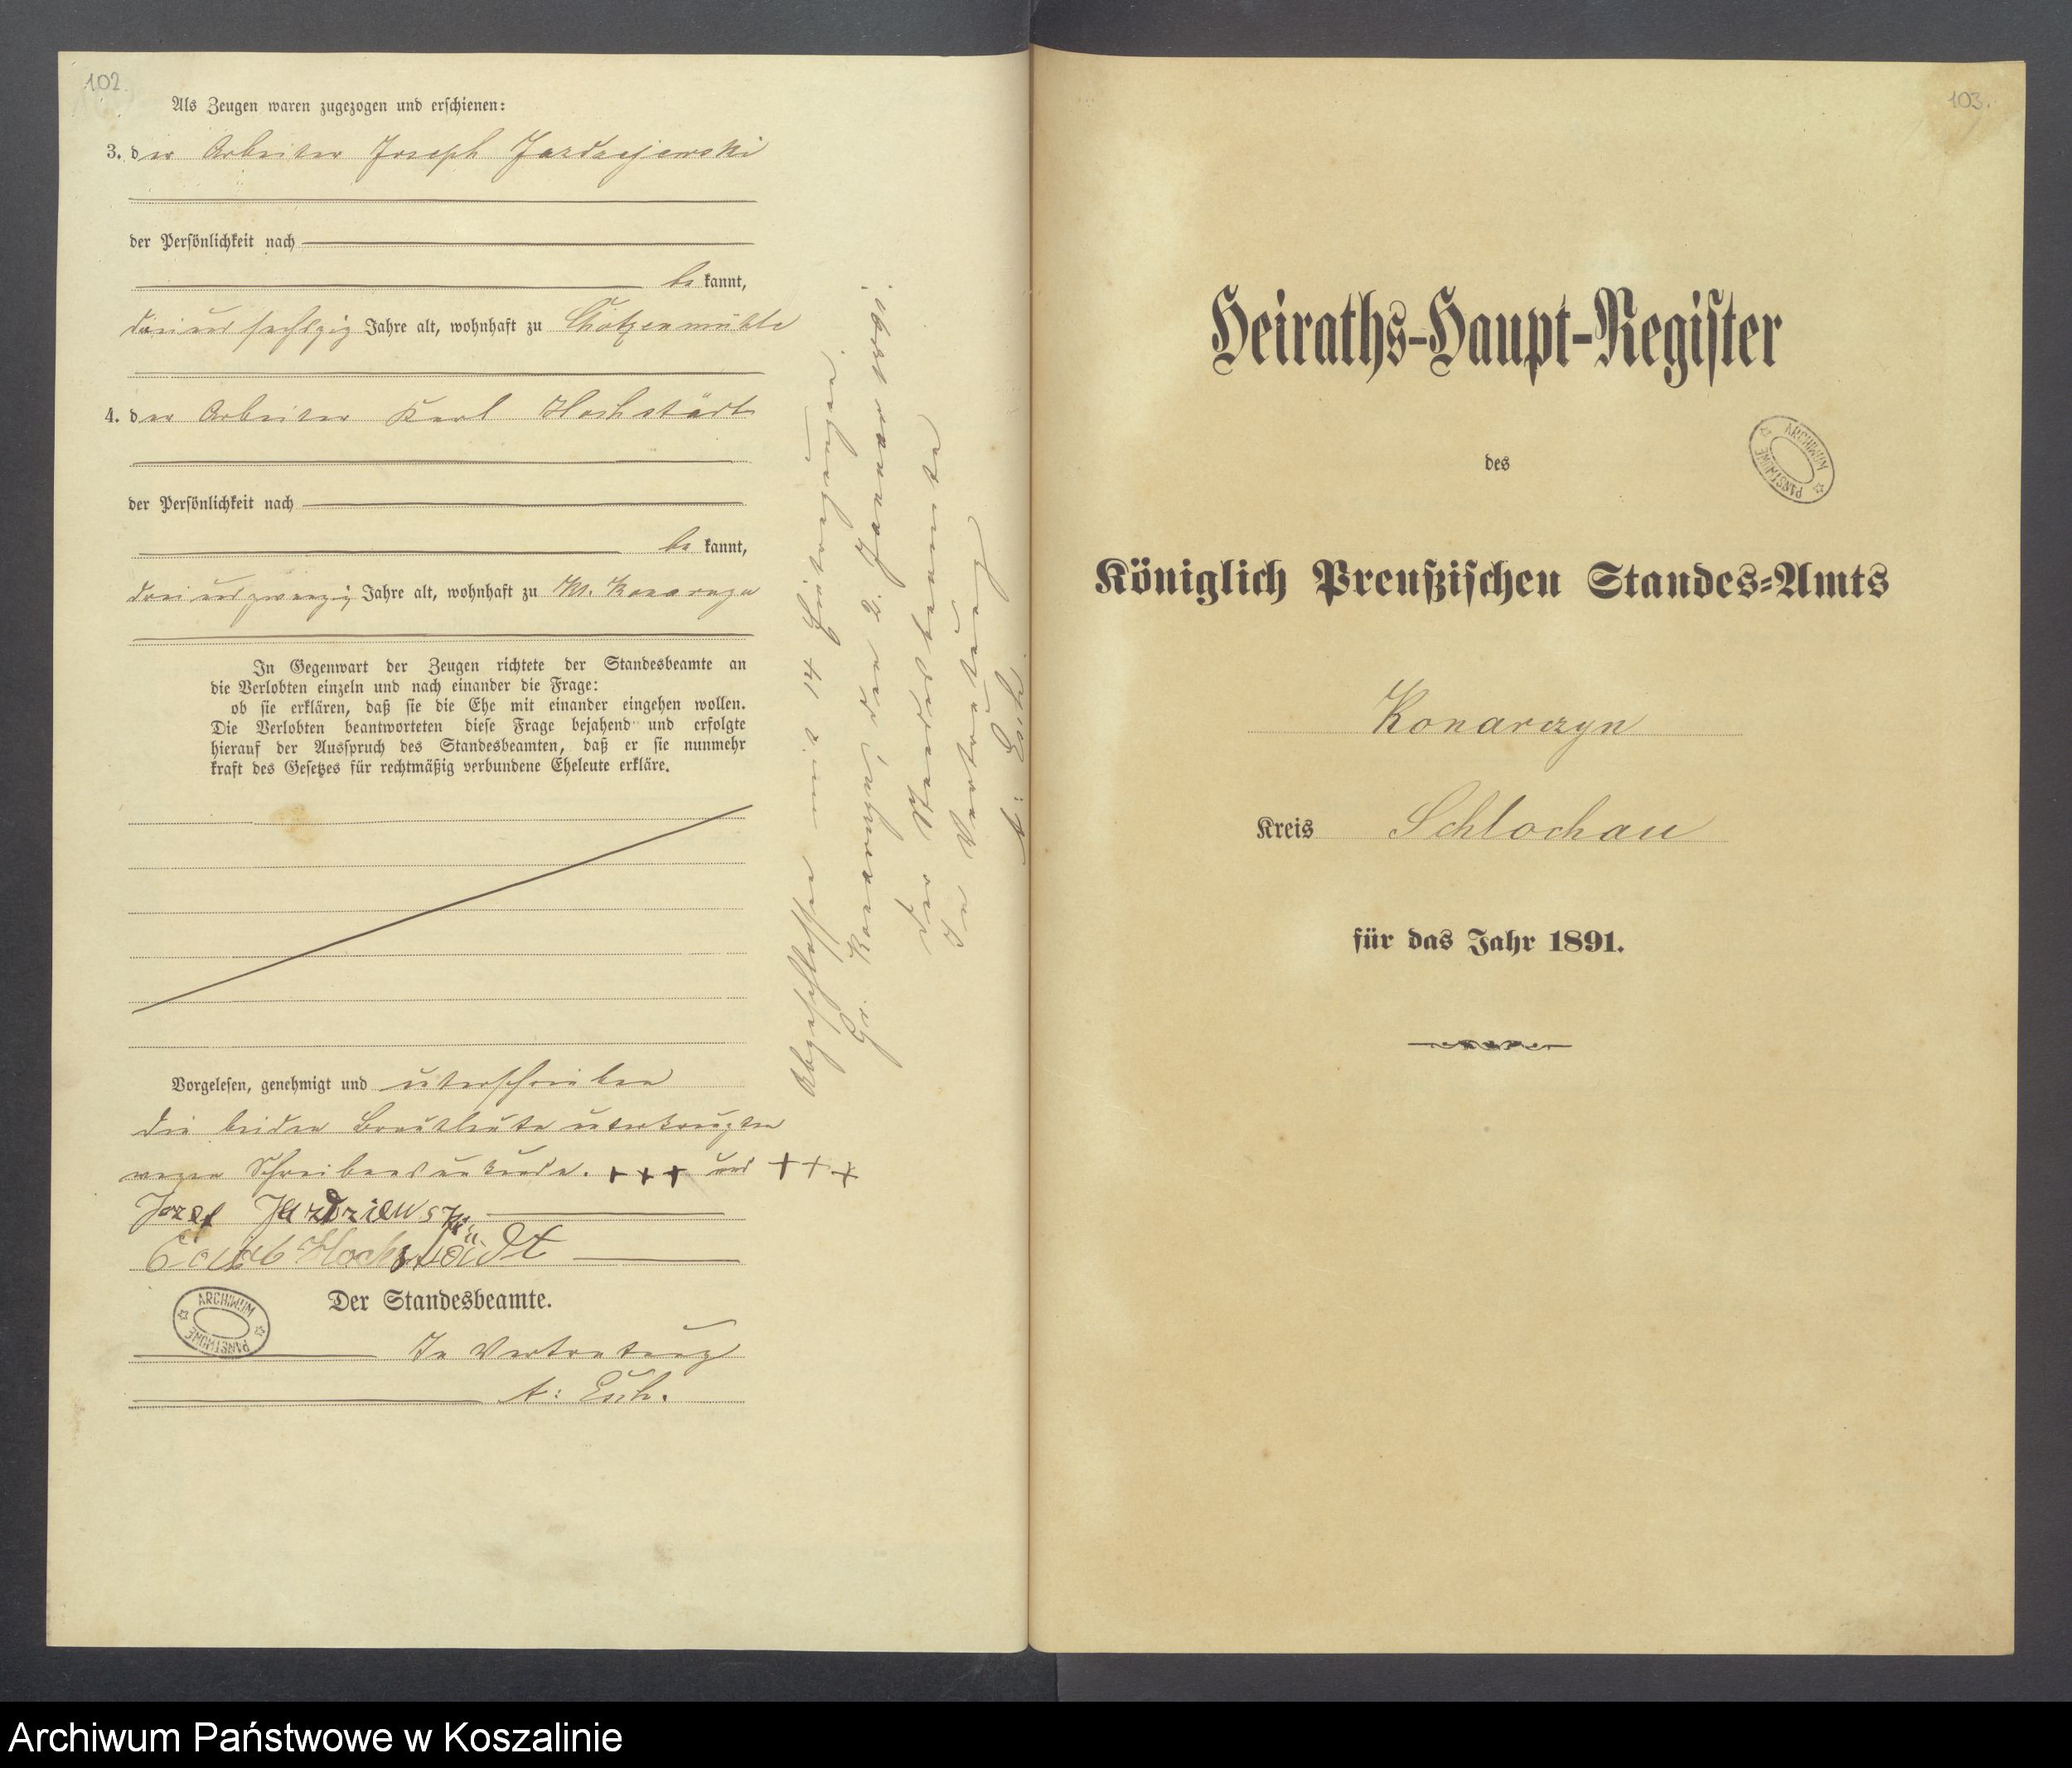 102.
Als Zeugen waren zugezogen und erschienen:
3. der Arbeiter Joseph Jazdzejewski
der Persönlichkeit nach
be kannt,
drei und sechszig Jahre alt, wohnhaft zu Chotzenmühle
4. der Arbeiter Karl Hochstädt
der Persönlichkeit nach
be kannt,
drei und zwanzig Jahre alt, wohnhaft zu Kl. Konarczyn
In Gegenwart der Zeugen richtete der Standesbeamte an
die Verlobten einzeln und nach einander die Frage:
ob sie erklären, daß sie die Ehe mit einander eingehen wollen.
Die Verlobten beantworteten diese Frage bejahend und erfolgte
hierauf der Ausspruch des Standesbeamten, daß er sie nunmehr
kraft des Gesetzes für rechtmäßig verbundene Eheleute erkläre.
Vorgelesen, genehmigt und unterschrieben
die beiden Brautleute unterkreuzten
wegen Schreibensunkunde. +++ und +++
Jozef
Hochstädt
Der Standesbeamte.
In Vertretung
A: Esch.
Abgeschlossen mit 14 Eintragungen.
Gr. Konarczyn, den 2. Januar 1891.
Der Standesbeamte
In Vertretung
A: Esch.
ARCHIWUM PAŃSTWOWE
103.
Heiraths-Haupt-Register
des
ARCHIWUM PAŃSTWOWE
Königlich Preußischen Standes-Amts
Konarczyn
Kreis Schlochau
für das Jahr 1891.
Archiwum Państwowe w Koszalinie